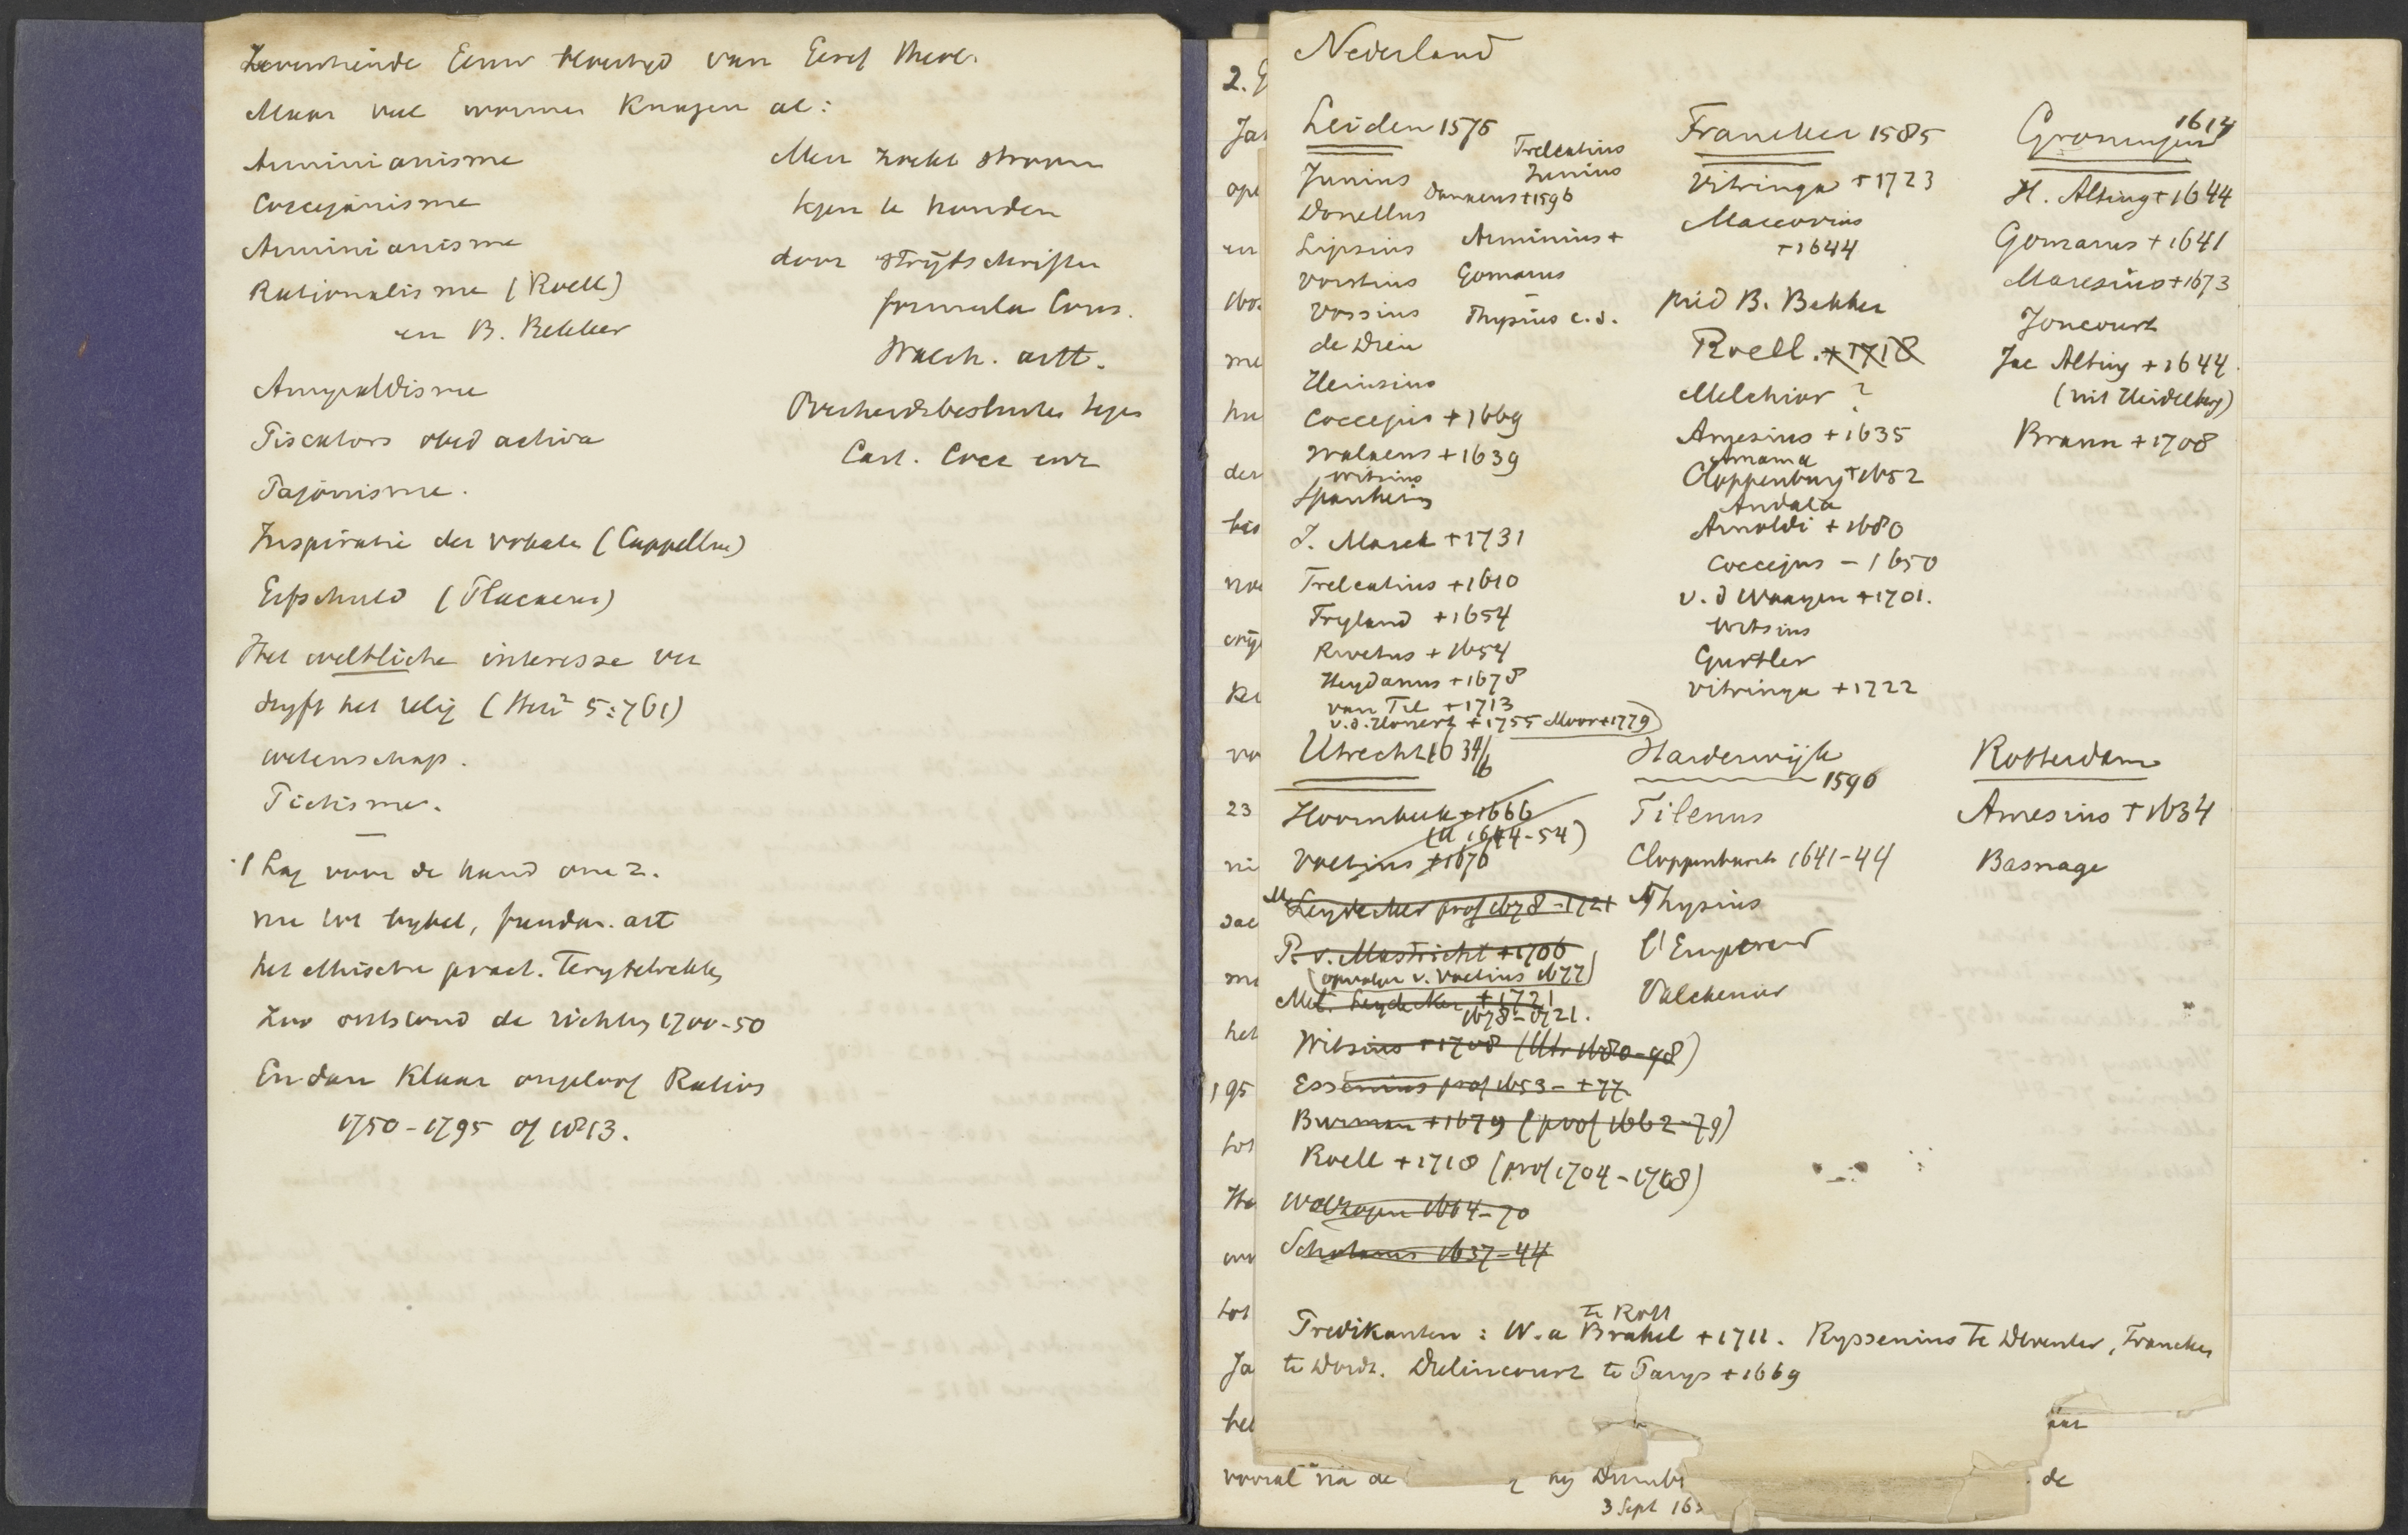 Zeventiende Eeuw bloeitijd van Geref theol.
Maar veel wormen knagen al:
Arminianisme
Coccejanisme
Arminianisme
Rationalisme (Roell)
en B. Bekker
Amyraldisme
Piscators obed activa
Pajonisme.
Inspiratie der vokalen (Cappellus)
Erfschuld (Placaeus)
Het weltliche interesse ver
dryft het relig (Herz² 5:761)
wetenschap.
Piëtisme.
't Lag voor de hand om 2.
nu tot bybel, fundam. art
het ethische pract. terugtrekken
Zoo ontstond de richting 1700-50
En dan klaar ongeloof Ratios
1750-1795 of 1813.
Men zocht stroom
tegen te houden
door strijdschriften
formula Cons.
Walch. artt.
Overheidsbesluiten tegen
Cart. Cocc enz
Nederland
Leiden 1575
Junius
Donellus
Lipsius
Vorstius
Vossius
de Dieu
Heinsius
Coccejus +1669
Walaeus +1639
Witsius
Spanheim
J. Marck +1731
Trelcatius +1610
Trygland +1654
Rivetus +1654
Heydanus +1678
van Til +1713
v.d. Honert +1755 Moor +1779
Trelcatius
Junius
Danaeus +1596
Arminius +
Gomarus
Thysius e.d.
Franeker 1585
Vitringa +1723
Maccovius
+1644
pred B. Bekker
Roell. +1718
Melchior ?
Amesius +1635
Amama
Cloppenburg +1652
Andala
Arnoldi +1680
Coccejus - 1650
v. d Waayen +1701.
Witsius
Gurtler
Vitringa +1722
Groningen 1614
H. Alting +1644
Gomarus +1641
Maresius +1673
Joncourt
Jac Alting +1644
(uit Heidelberg)
Braun +1708
Utrecht 1634/6
Hoornbeek +1666
(U 1644-54)
Voetius +1676
M. Leydecker prof 1678-1721
P. v. Mastricht +1706
(opvolger v. Voetius 1677)
Mel. Leydekker +1721
1678-1721.
Witsius +1708 (Utr 1680-98)
Essenius prof 1653- +77
Burman +1679 (prof 1662-79)
Roell +1718 (prof 1704-1718)
Wolzogen 1664-70
Schotanus 1637-44
Harderwijk
1590
Tilenus
Cloppenburch 1641-44
Thysius
l'Empereur
Valckenier
Rotterdam
Amesius +1634
Basnage
te Rott
Predikanten: W. a Brakel +1711. Ryssenius te Deventer, Francken
te Dordt. Drelincourt te Parys +1669
vooral na de
de
3 Sept 163